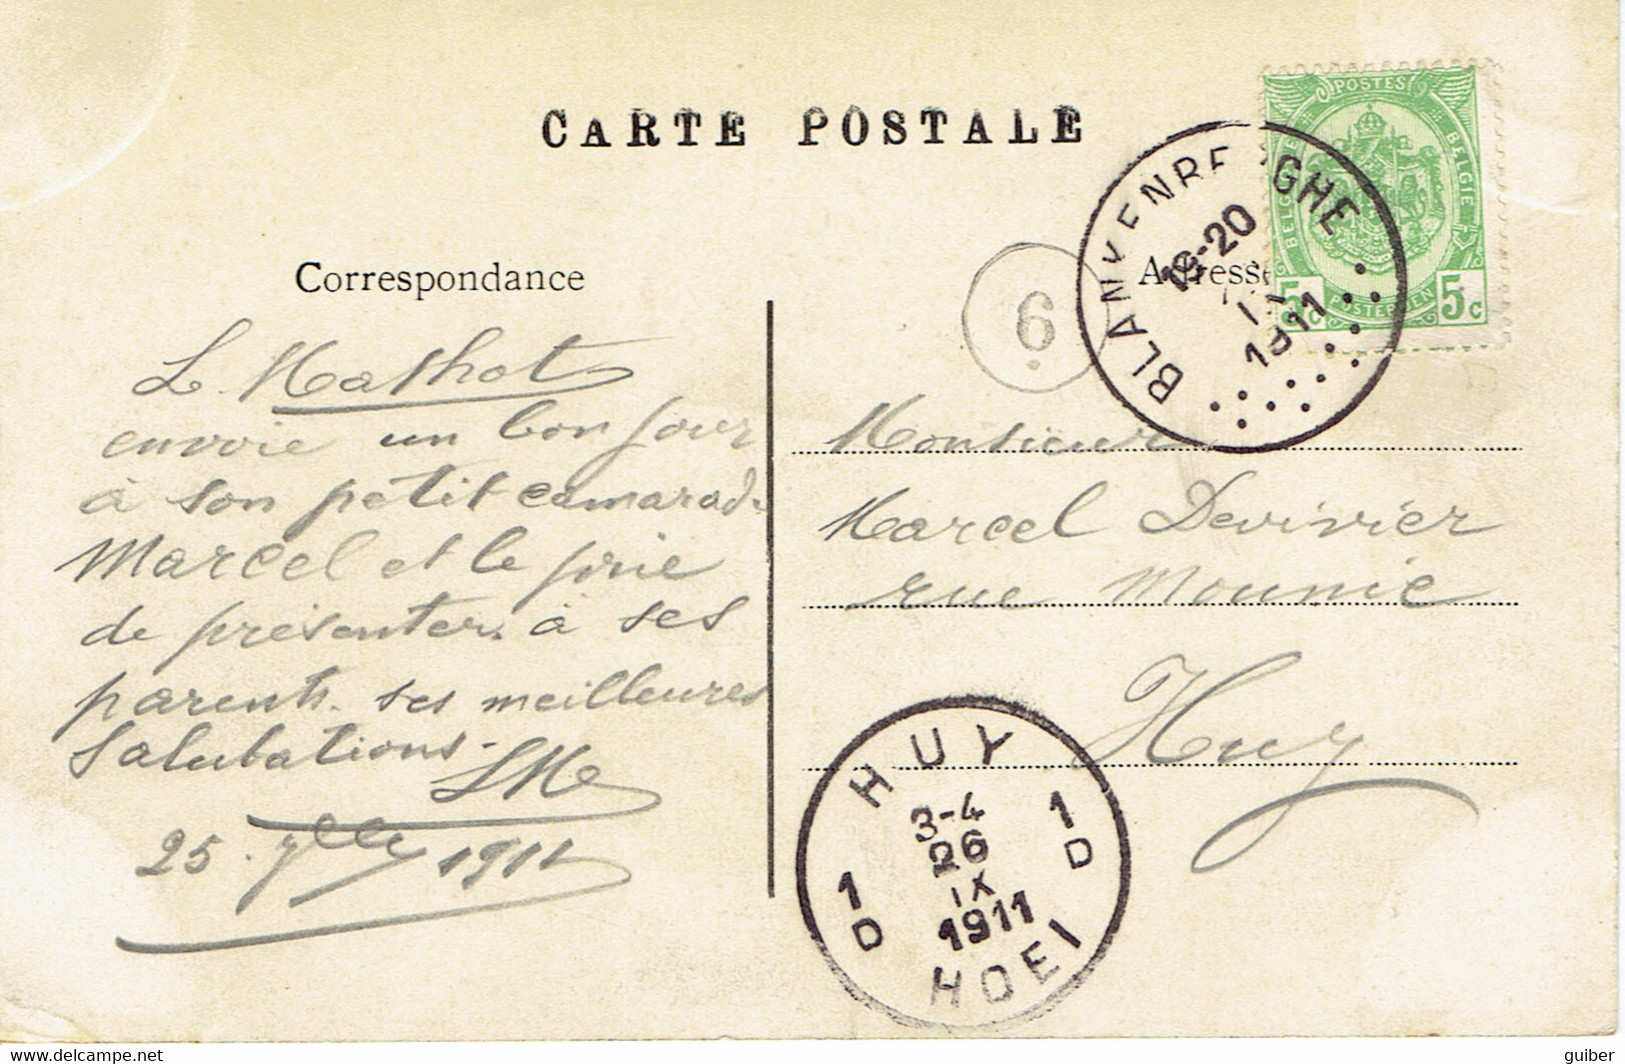 CARTE POSTALE
POSTES
BELGIQUE
BELGIE
POSTERIJEN
5c
5c
BLANKENBERGHE
16-20
1911
6
Correspondance
Adresse
L. Mathot
envoie un bonjour
à son petit camarad.
Marcel et le prie
de présenter à ses
parents ses meilleures
Salutations.
25 7bre 1911
Monsieur
Marcel Devivier
rue Mounie
Huy
HUY
3-4
26
IX
1911
1 D
1 D
HOEI
guiber